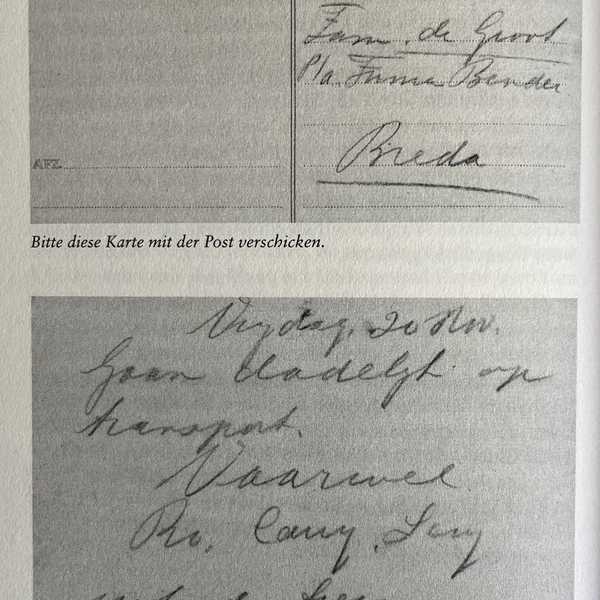 Fam. de Groot
P/a Firma Bender
Breda
AFZ.
Bitte diese Karte mit der Post verschicken.
Vrijdag, 20 Nov.
Gaan dadelijk op
transport.
Vaarwel
Ro,